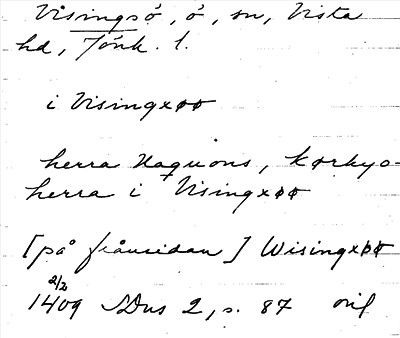 Visingsö, ö, sn, Vista
hd, Jönk. l.
i Visingxøø
herra Haquons, kørkyo-
herra i Visingxøø
[på frånsidan] Wisingxøø
2/2
1409 SDns 2, s. 87 oril